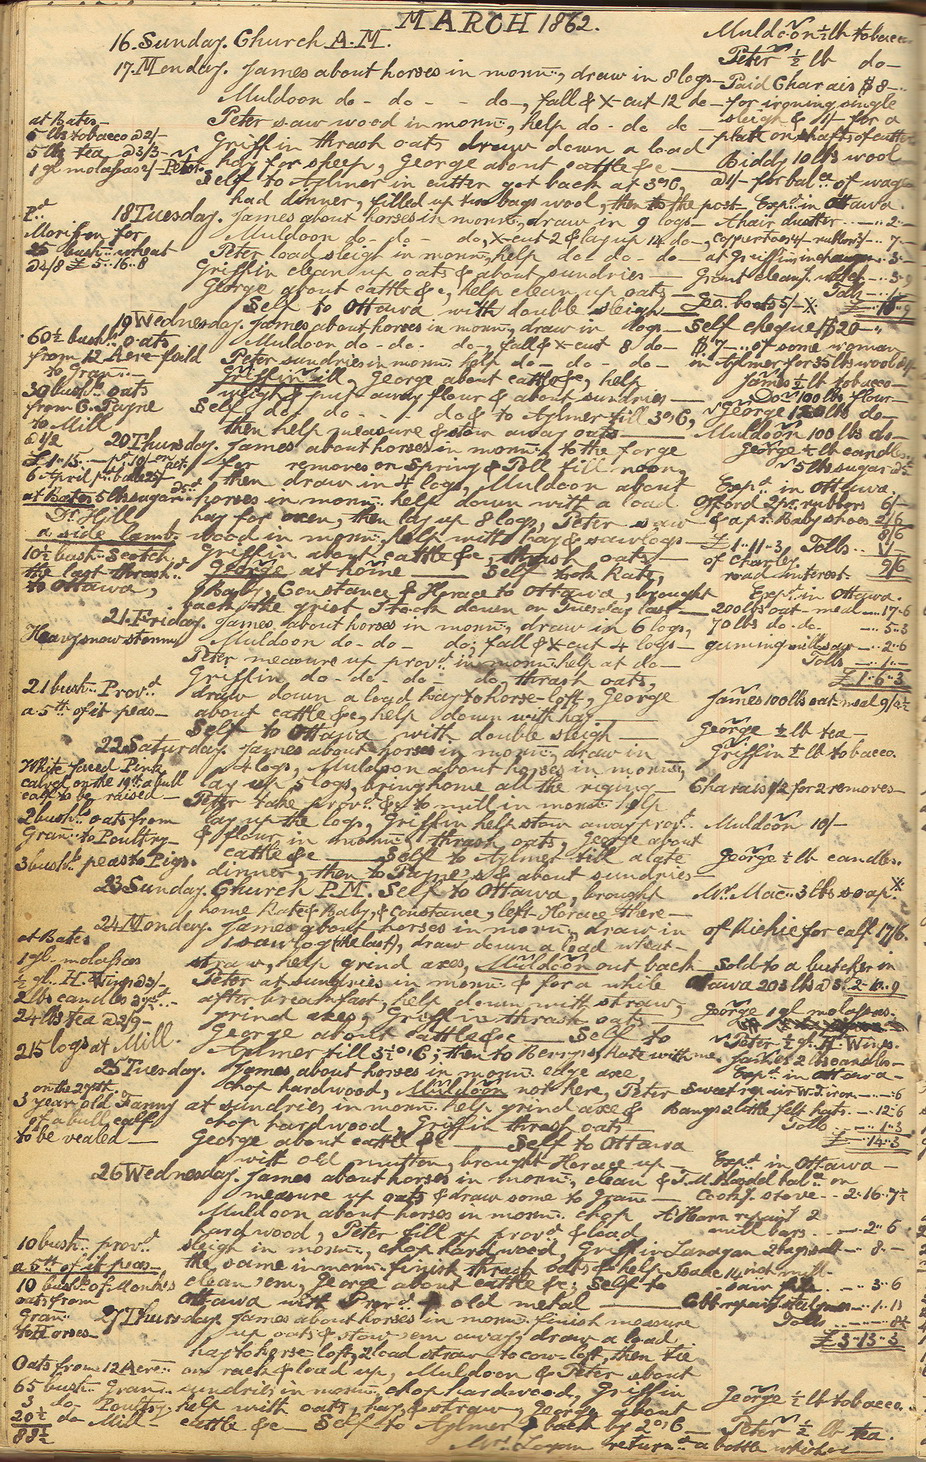 MARCH 1862.
16. Sunday. Church A.M.
Muldoon ½ lb tobacco
Peter ½ lb do—
17. Monday. James about horses in morn:, draw in 8 logs—
Paid Charais $8—
Muldoon do- do- - - do-, fall & X-cut 12 do—
for ironing single
at Bates—
Peter saw wood in morn:, help do- do- do—
sleigh & for a
5 lbs tobacco @2/-
Griffin thrash oats draw down a load
plate on shafts of cutter
5 lbs tea @3/3-
hay for sheep, George about cattle &c—
Biddy 10 lbs wool
1 gl molasses/- Peter
Self to Aylmer in cutter got back at 3 o'c,
@/- for bal.ce of wages
had dinner, filled up two bags wool, then to the post
Exp.d in Ottawa.
P.d
18 Tuesday. James about horses in morn:, draw in 9 logs—
A hair duster ... 2.-
Morifon for
Muldoon do- do- do, X-cut 2 & lay up 14 do—
25 bush: wheat
Peter load sleigh in morn:, help do- do- do—
at Griffin in change ... 3.-
@4/8 £5..16..8
Griffin clean up oats & about sundries—
George about cattle &c, help clean up oats—
Tolls
Self to Ottawa with double sleigh—
Geo. boots 5/-X
19 Wednesday. James about horses in morn:, draw in logs—
Self cheque $20—
60½ bush: oats
Muldoon do- do- do-, fall & X-cut 8 do—
$7— of some woman
from 12 Acre field
Peter sundries in morn: help do- do- do—
in Aylmer for 35 lbs wool
to Gran:—
Griffin ill, George about cattle &c, help
James ½ lb tobacco—
39 bush: oats
weigh & put away flour & about sundries—
Do 100 lbs flour—
from C. Payne
Self do- do- - - - do & to Aylmer till 3 o'c,
George lbs do—
to Mill
then help measure & stow away oats—
Muldoon 100 lbs do—
20 Thursday. James about horses in morn:, to the forge
George ½ lb candles
for removes on Spring & Toll till noon,
5 lbs sugar
then draw in 4 logs, Muldoon about
Exp.d in Ottawa.
at Bates 5 lbs sugar
horses in morn: help down with a load
Offord 2 pr: rubbers 6/-
Dr. Hill
hay for oxen, then lay up 8 logs, Peter saw
& a pr: Baby shoes 2/6
a side lamb.
wood in morn: help with hay & saw logs—
£1..11..3, Tolls
10½ bush: Scotch
Griffin about cattle &c, thrash oats
of Charley
9/6
the last thrash.d
George at home — Self took Kate,
road interest.
to Ottawa,
Baby, Constance & Horace to Ottawa, brought
Exp.d in Ottawa.
back the grist I took down on Tuesday last—
200 lbs oat-meal ... 17-6
21. Friday. James about horses in morn:, draw in 6 logs,
70 lbs do- do- ... 5-3
Heavy snow storm
Muldoon do- do- do, fall & X-cut 4 logs—
2-6
Peter measure up prov.d in morn: help at do—
Tolls
Griffin do- do- do- do, thrash oats,
£1..6..3
21 bush: Prov.d
draw down a load hay to horse-loft, George
James 100 lbs oat-meal
a 5th of it peas—
about cattle &c, help down with hay—
Self to Ottawa with double sleigh—
George ½ lb tea—
22 Saturday. James about horses in morn:, draw in
Griffin ½ lb tobacco.
White faced Pink
4 logs, Muldoon about horses in morn:,
calved on the 19th a bull
lay up 5 logs, bring home all the rigging—
Charais $2 for 2 removes—
calf to be raised—
Peter take prov.d &c to mill in morn: help
2 bush: oats from
lay up the logs, Griffin help stow away prov.d
Muldoon 10/-
Gran: to Poultry—
& flour in morn:, thrash oats, George about
3 bush: peas to Pigs.
cattle &c — Self to Aylmer till a late
George ½ lb candles.
dinner, then to Payne's & about sundries—
23 Sunday. Church P.M. Self to Ottawa, brought
Mr. Mac: 3 lbs soap X
home Kate & Baby, & Constance, left Horace there—
24 Monday. James about horses in morn:, draw in
of Richie for calf 17/6.
at Bates
1 saw log (the last), draw down a load wheat-
1 gl. molasses
straw, help grind axes, Muldoon out back
Sold to a butcher in
½ gl. H. Wine @3/-
Peter at sundries in morn: & for a while
Ottawa 203 lbs
2 lbs candles
after breakfast, help down with straw,
George 1 gl. molasses.
24 lbs tea @2/9-
grind axes, Griffin thrash oats—
215 logs at Mill.
George about cattle &c — Self to
Peter ½ gl. H. Wine.
Aylmer till 3½ o'c; then to Berry's, Kate with me,
James 2 lbs candles—
25 Tuesday. James about horses in morn: edge axe,
Exp.d in Ottawa—
on the 24th
chop hardwood, Muldoon not here, Peter
Sweet repair W.T. iron
3 year old Fanny
at sundries in morn: help grind axe &
Bangs 2 little felt hats ... 12-6
of a bull calf
chop hardwood, Griffin thrash oats—
Tolls ... 1.3
to be vealed—
George about cattle &c — Self to Ottawa
£—..14..3
with old mutton, brought Horace up—
Exp.d in Ottawa—
26 Wednesday. James about horses in morn:, clean &
T.M. Blasdel bal.ce on
measure up oats & draw some to Gran:—
Cook.g stove .. 2-16-7½
Muldoon about horses in morn: chop
A. Horn repair.g 2
hardwood, Peter fill up prov.d & load
mill bars ... 2-6
10 bush: prov.d
sleigh in morn:, chop hardwood, Griffin
Lanagan 2 bags salt ... 8.-
a 5th of it peas,
the same in morn: finish thrash oats & help
Isaac 14 inch mill-
10 bush: of Monkies
clean 'em, George about cattle &c; Self to
saw ... 3-6
oats from
Ottawa with Prov.d & old metal—
Gran:
27 Thursday. James about horses in morn: finish measure
Tolls
to Horses
up oats & stow 'em away, draw a load
£3-13-3
hay to horse-loft, 2 load straw to cow-loft, then tie
Oats from 12 Acre:
on rack & load up, Muldoon & Peter about
65 bush: Gran:
sundries in morn:, chop hardwood, Griffin
George ½ lb tobacco.
3 do Poultry
help with oats, hay & straw, George about
20½ do Mill—
cattle &c — Self to Aylmer, back by 2 o'c—
Peter ½ lb tea.
88½
Mrs. Logan return.d a bottle whiskey—